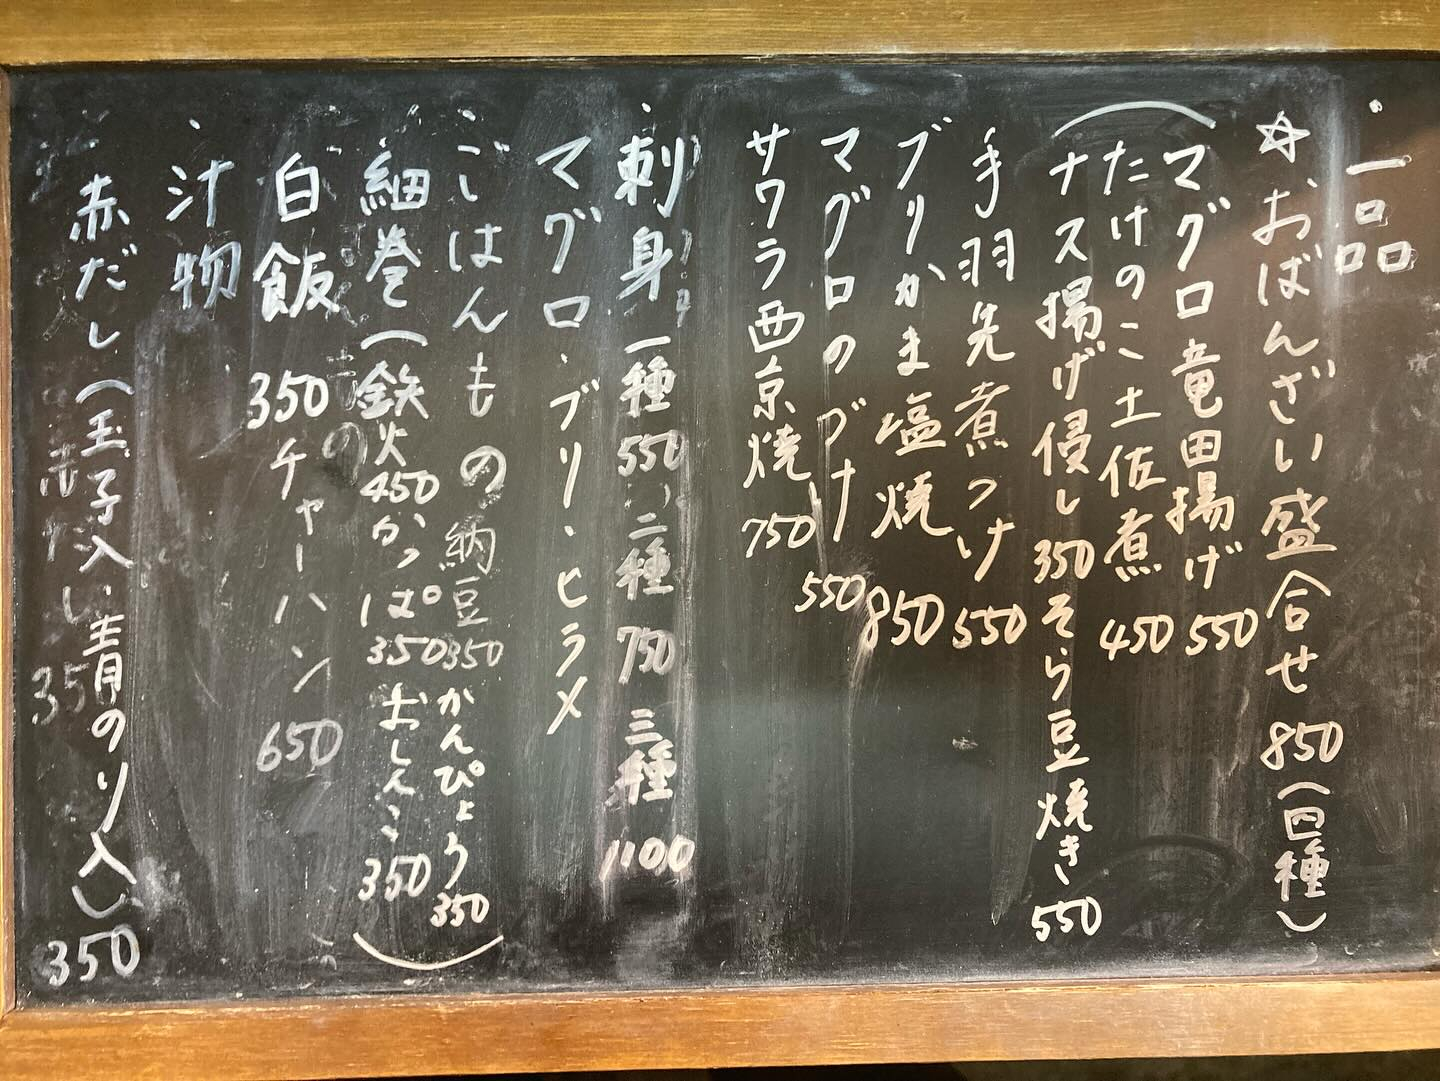 ・一品
☆おばんざい盛合せ 850(四種)
マグロ竜田揚げ 550
たけのこ土佐煮 450
ナス揚げ浸し 350 そら豆焼き 550
手羽先煮つけ 550
ブリかま塩焼 850
マグロのづけ 550
サワラ西京焼 750
・刺身 一種 550 二種 750 三種 1100
マグロ・ブリ・ヒラメ
・ごはんもの 納豆 350 かんぴょう 350
細巻(鉄火 450 かっぱ 350 おしんこ 350)
白飯 350 チャーハン 650
・汁物
赤だし(玉子入り・青のり入り) 350